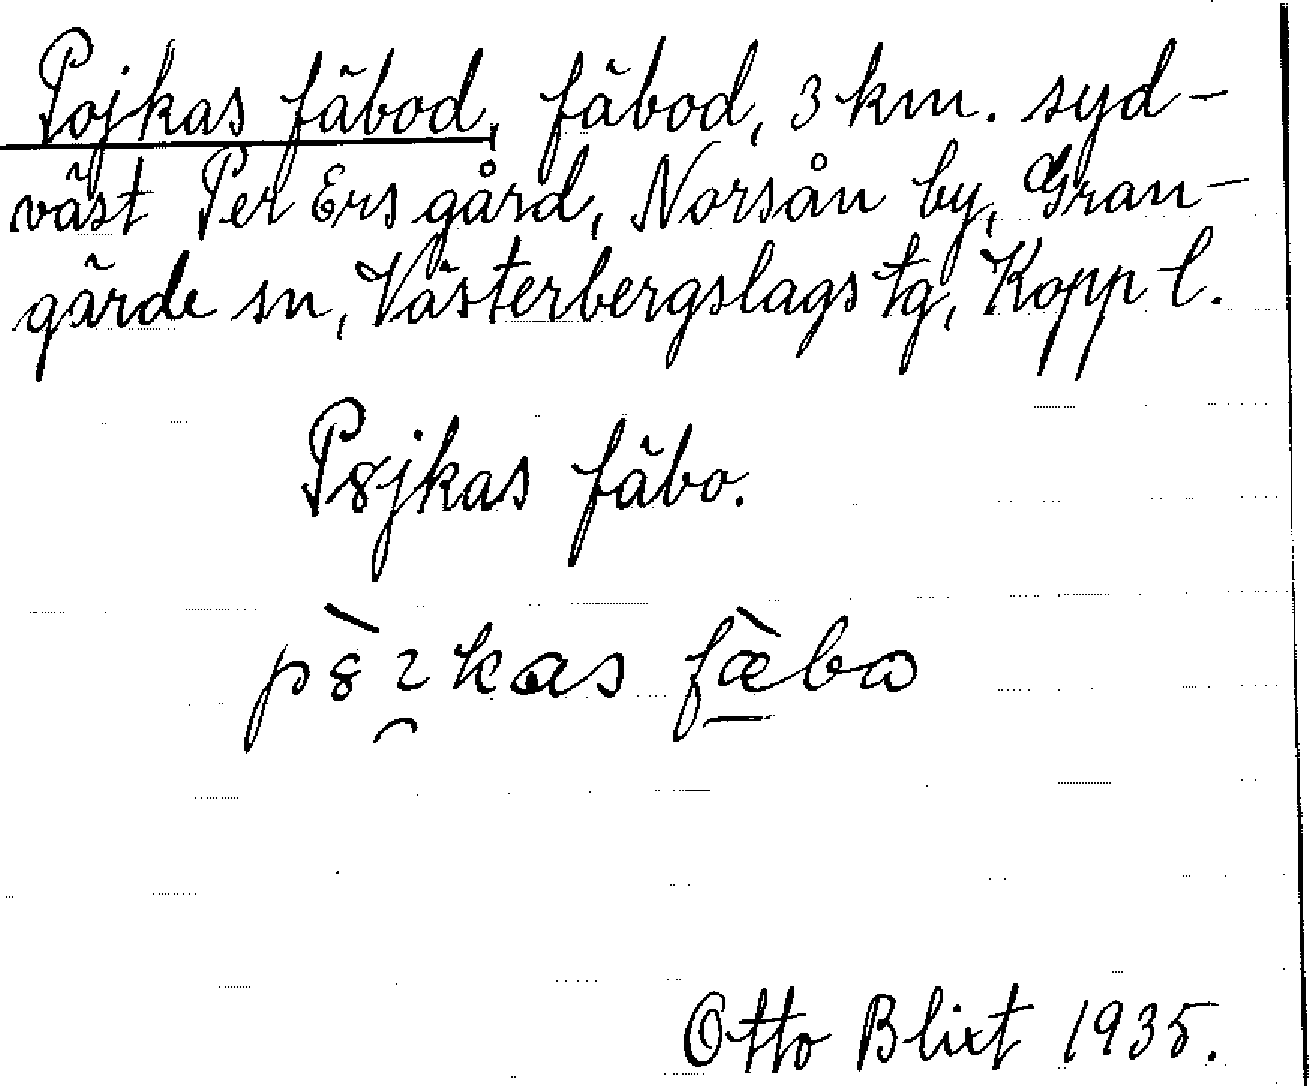 Pojkas fäbod, fäbod, 3 km. syd-
väst Per Ers gård, Norsån by, Gran-
gärde sn, Västerbergslags tg, Kopp l.
P8jkas fäbo.
p8̀ɿkas fæ̀bɷ
Otto Blixt 1935.